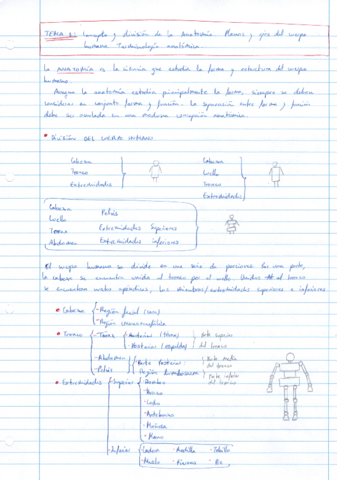 TEMA 1: Concepto y división de la Anatomía. Planos y ejes del cuerpo
humano. Terminología anatómica.
La ANATOMÍA es la ciencia que estudia la forma y estructura del cuerpo
humano.
Aunque la anatomía estudia principalmente la forma, siempre se deben
considerar en conjunto forma y función. La separación entre forma y función
debe ser anulada en una moderna concepción anatómica.
• DIVISIÓN DEL CUERPO HUMANO
Cabeza
Tronco
Extremidades
Cabeza
Cuello
Tronco
Extremidades
Cabeza
Cuello
Tórax
Abdomen
Pelvis
Extremidades superiores
Extremidades inferiores
El cuerpo humano se divide en una serie de porciones. Por una parte,
la cabeza se encuentra unida al tronco por el cuello. Unidos al tronco
se encuentran los miembros/extremidades superiores e inferiores
• Cabeza
- Región facial (cara)
- Región
• Tronco
- Tórax
(espalda)
Parte superior
del tronco
- Abdomen
- Pelvis
Región
Parte media
del tronco
Parte inferior
del tronco
• Extremidades
- Superior
• Hombro
• Brazo
• Codo
• Antebrazo
• Muñeca
• Mano
- Inferior
• Cadera
• Rodilla
• Tobillo
• Muslo
• Pierna
• Pie